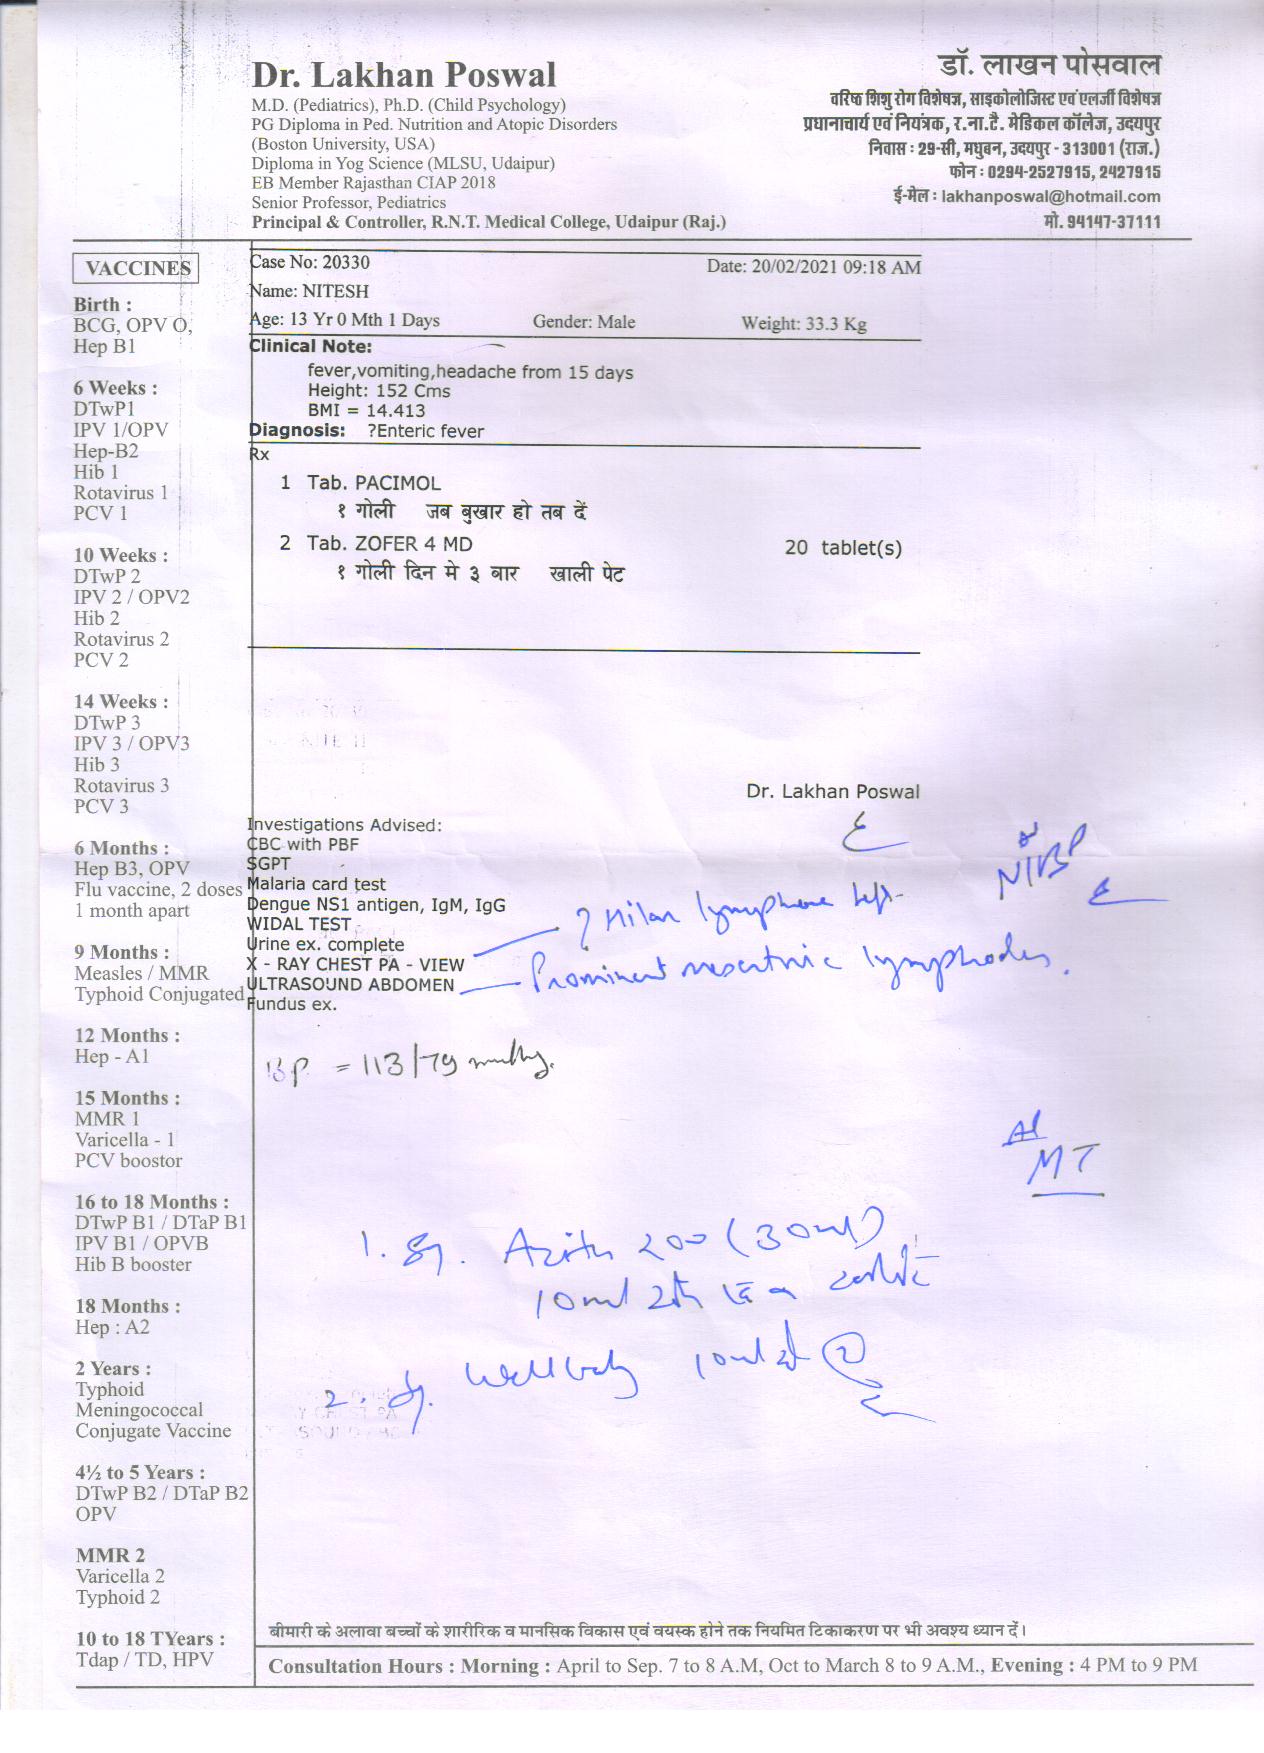 Dr. Lakhan Poswal
M.D. (Pediatrics), Ph.D. (Child Psychology)
PG Diploma in Ped. Nutrition and Atopic Disorders
(Boston University, USA)
Diploma in Yog Science (MLSU, Udaipur)
EB Member Rajasthan CIAP 2018
Senior Professor, Pediatrics
Principal & Controller, R.N.T. Medical College, Udaipur (Raj.)
डॉ. लाखन पोसवाल
वरिष्ठ शिशु रोग विशेषज्ञ, साइकोलोजिस्ट एवं एलर्जी विशेषज्ञ
प्रधानाचार्य एवं नियंत्रक, र.ना.टै. मेडिकल कॉलेज, उदयपुर
निवास : 29-सी, मधुबन, उदयपुर - 313001 (राज.)
फोन : 0294-2527915, 2427915
ई-मेल : lakhanposwal@hotmail.com
मो. 94147-37111
VACCINES
Birth :
BCG, OPV O,
Hep B1
6 Weeks :
DTwP1
IPV 1/OPV
Hep-B2
Hib 1
Rotavirus 1
PCV 1
10 Weeks :
DTwP 2
IPV 2 / OPV2
Hib 2
Rotavirus 2
PCV 2
14 Weeks :
DTwP 3
IPV 3 / OPV3
Hib 3
Rotavirus 3
PCV 3
6 Months :
Hep B3, OPV
Flu vaccine, 2 doses
1 month apart
9 Months :
Measles / MMR
Typhoid Conjugated
12 Months :
Hep - A1
15 Months :
MMR 1
Varicella - 1
PCV boostor
16 to 18 Months :
DTwP B1 / DTaP B1
IPV B1 / OPVB
Hib B booster
18 Months :
Hep : A2
2 Years :
Typhoid
Meningococcal
Conjugate Vaccine
4½ to 5 Years :
DTwP B2 / DTaP B2
OPV
MMR 2
Varicella 2
Typhoid 2
10 to 18 TYears :
Tdap / TD, HPV
Case No: 20330
Date: 20/02/2021 09:18 AM
Name: NITESH
Age: 13 Yr 0 Mth 1 Days Gender: Male Weight: 33.3 Kg
Clinical Note:
fever,vomiting,headache from 15 days
Height: 152 Cms
BMI = 14.413
Diagnosis: ?Enteric fever
Rx
1 Tab. PACIMOL
१ गोली जब बुखार हो तब दें
2 Tab. ZOFER 4 MD 20 tablet(s)
१ गोली दिन मे ३ बार खाली पेट
Dr. Lakhan Poswal
Investigations Advised:
CBC with PBF
SGPT
Malaria card test
Dengue NS1 antigen, IgM, IgG
WIDAL TEST
Urine ex. complete
X - RAY CHEST PA - VIEW
ULTRASOUND ABDOMEN
Fundus ex.
NIBP
? Hilar
Prominent mesenteric lymphnodes.
BP = 113/79 mmHg.
MT
1. Sy. Azith 200 (30ml)
10ml
2. Sy. Wellbaby 10ml
बीमारी के अलावा बच्चों के शारीरिक व मानसिक विकास एवं वयस्क होने तक नियमित टिकाकरण पर भी अवश्य ध्यान दें।
Consultation Hours : Morning : April to Sep. 7 to 8 A.M, Oct to March 8 to 9 A.M., Evening : 4 PM to 9 PM